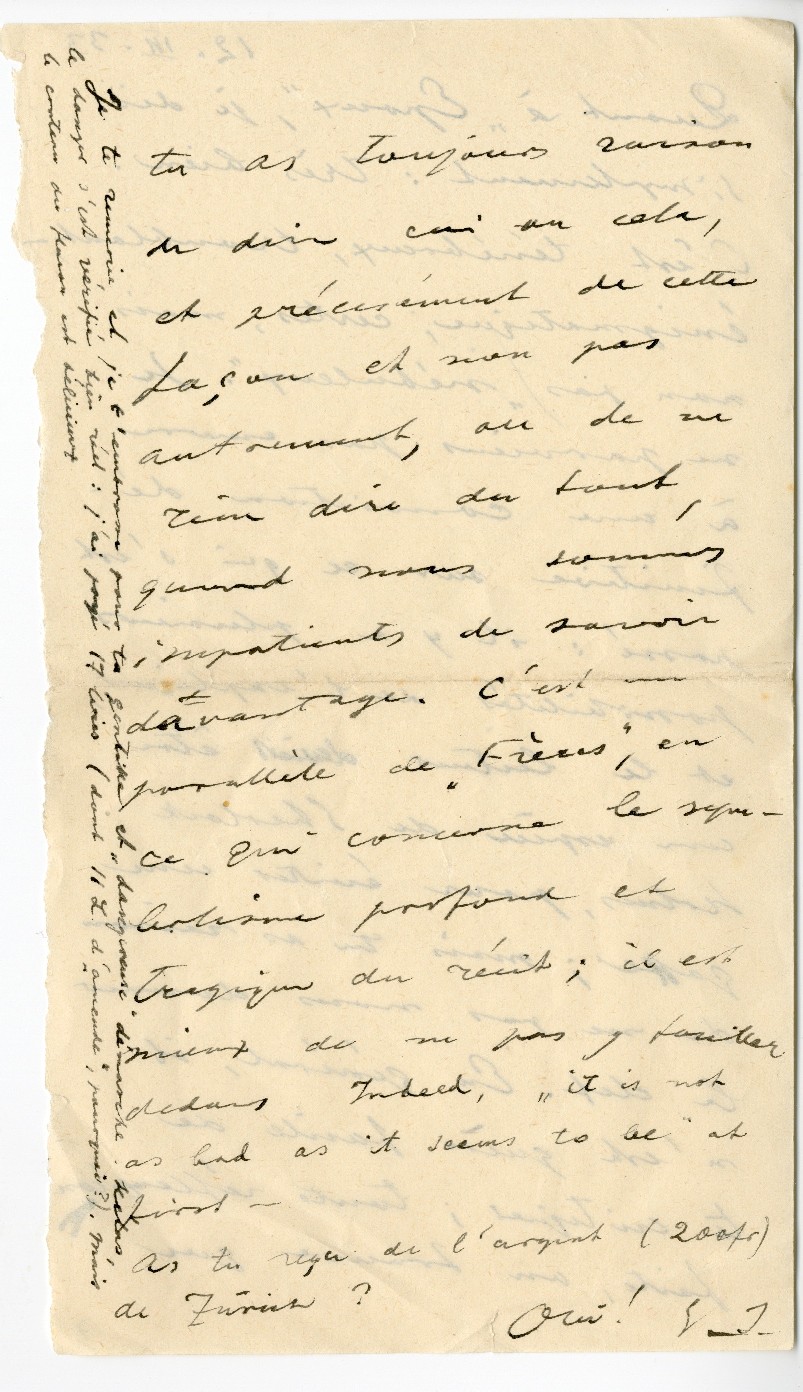 tu as toujours raison
de dire ceci ou cela,
et précisément de cette
façon et non pas
autrement, ou de ne
rien dire du tout,
quand nous sommes
impatients de savoir
davantage. C'est un
parallèle de „Frères", en
ce qui concerne le sym-
bolisme profond et
tragique du récit ; il est
mieux de ne pas y fouiller
dedans Indeed, „it is not
as bad as it seems to be" at
first –
As tu reçu de l'argent (200fr)
de Zürich ?
Oui!
Je te remercie et je t'embrasse pour ta gentille et „dangereuse" démarche. Hélas,
le danger s'est vérifié bien réel : j'ai payé 17 lires (dont 11 L. d'„amende", pourquoi?). Mais
le contenu du flacon est délicieux